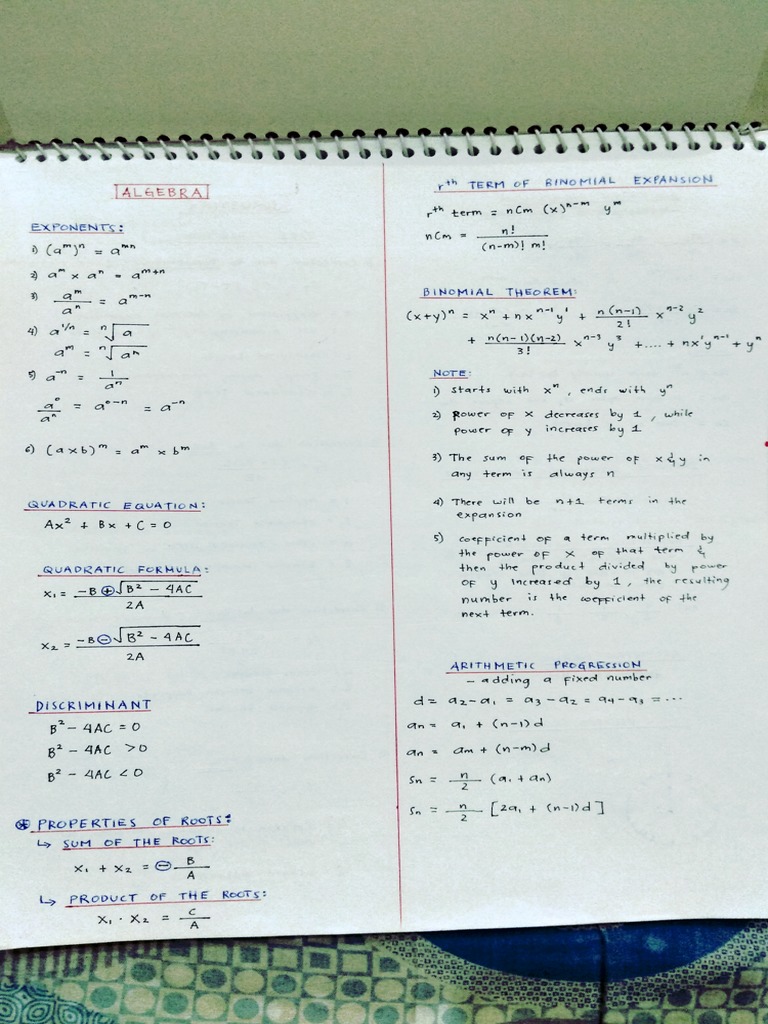 ALGEBRA
EXPONENTS:
1) (aᵐ)ⁿ = aᵐⁿ
2) aᵐ × aⁿ = aᵐ⁺ⁿ
3) aᵐ/aⁿ = aᵐ⁻ⁿ
4) a^(1/n) = ⁿ√a
aᵐ = ⁿ√aⁿ
5) a⁻ⁿ = 1/aⁿ
a⁰/aⁿ = a⁰⁻ⁿ = a⁻ⁿ
6) (a × b)ᵐ = aᵐ × bᵐ
QUADRATIC EQUATION:
Ax² + Bx + C = 0
QUADRATIC FORMULA:
x₁ = (-B ⊕ √(B² - 4AC)) / 2A
x₂ = (-B ⊖ √(B² - 4AC)) / 2A
DISCRIMINANT
B² - 4AC = 0
B² - 4AC > 0
B² - 4AC < 0
⊛ PROPERTIES OF ROOTS:
↳ SUM OF THE ROOTS:
x₁ + x₂ = ⊖ B/A
↳ PRODUCT OF THE ROOTS:
x₁ · x₂ = C/A
rᵗʰ TERM OF BINOMIAL EXPANSION
rᵗʰ term = nCm (x)ⁿ⁻ᵐ yᵐ
nCm = n! / (n-m)! m!
BINOMIAL THEOREM:
(x+y)ⁿ = xⁿ + nxⁿ⁻¹y¹ + n(n-1)/2! xⁿ⁻²y²
+ n(n-1)(n-2)/3! xⁿ⁻³y³ + .... + nx¹yⁿ⁻¹ + yⁿ
NOTE:
1) starts with xⁿ, ends with yⁿ
2) Power of x decreases by 1, while
power of y increases by 1
3) The sum of the power of x & y in
any term is always n
4) There will be n+1 terms in the
expansion
5) coefficient of a term multiplied by
the power of x of that term &
then the product divided by power
of y increased by 1, the resulting
number is the coefficient of the
next term.
ARITHMETIC PROGRESSION
- adding a fixed number
d = a₂-a₁ = a₃-a₂ = a₄-a₃ = ...
an = a₁ + (n-1)d
an = am + (n-m)d
Sn = n/2 (a₁ + an)
Sn = n/2 [2a₁ + (n-1)d]